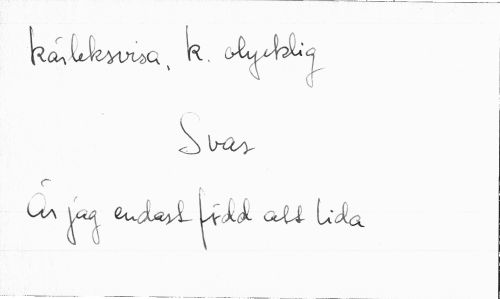 kärleksvisa, k. olycklig
Svar
Är jag endast född att lida